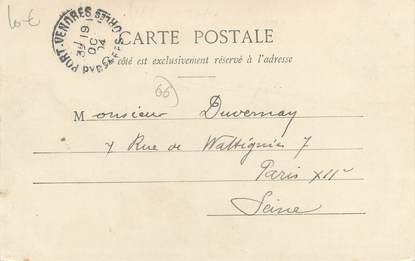 10-€
CARTE POSTALE
Ce côté est exclusivement réservé à l'adresse
PORT-VENDRES
19
OC
04
66
Monsieur Duvernay
7 Rue de Wattignies 7
Paris XIIe
Seine